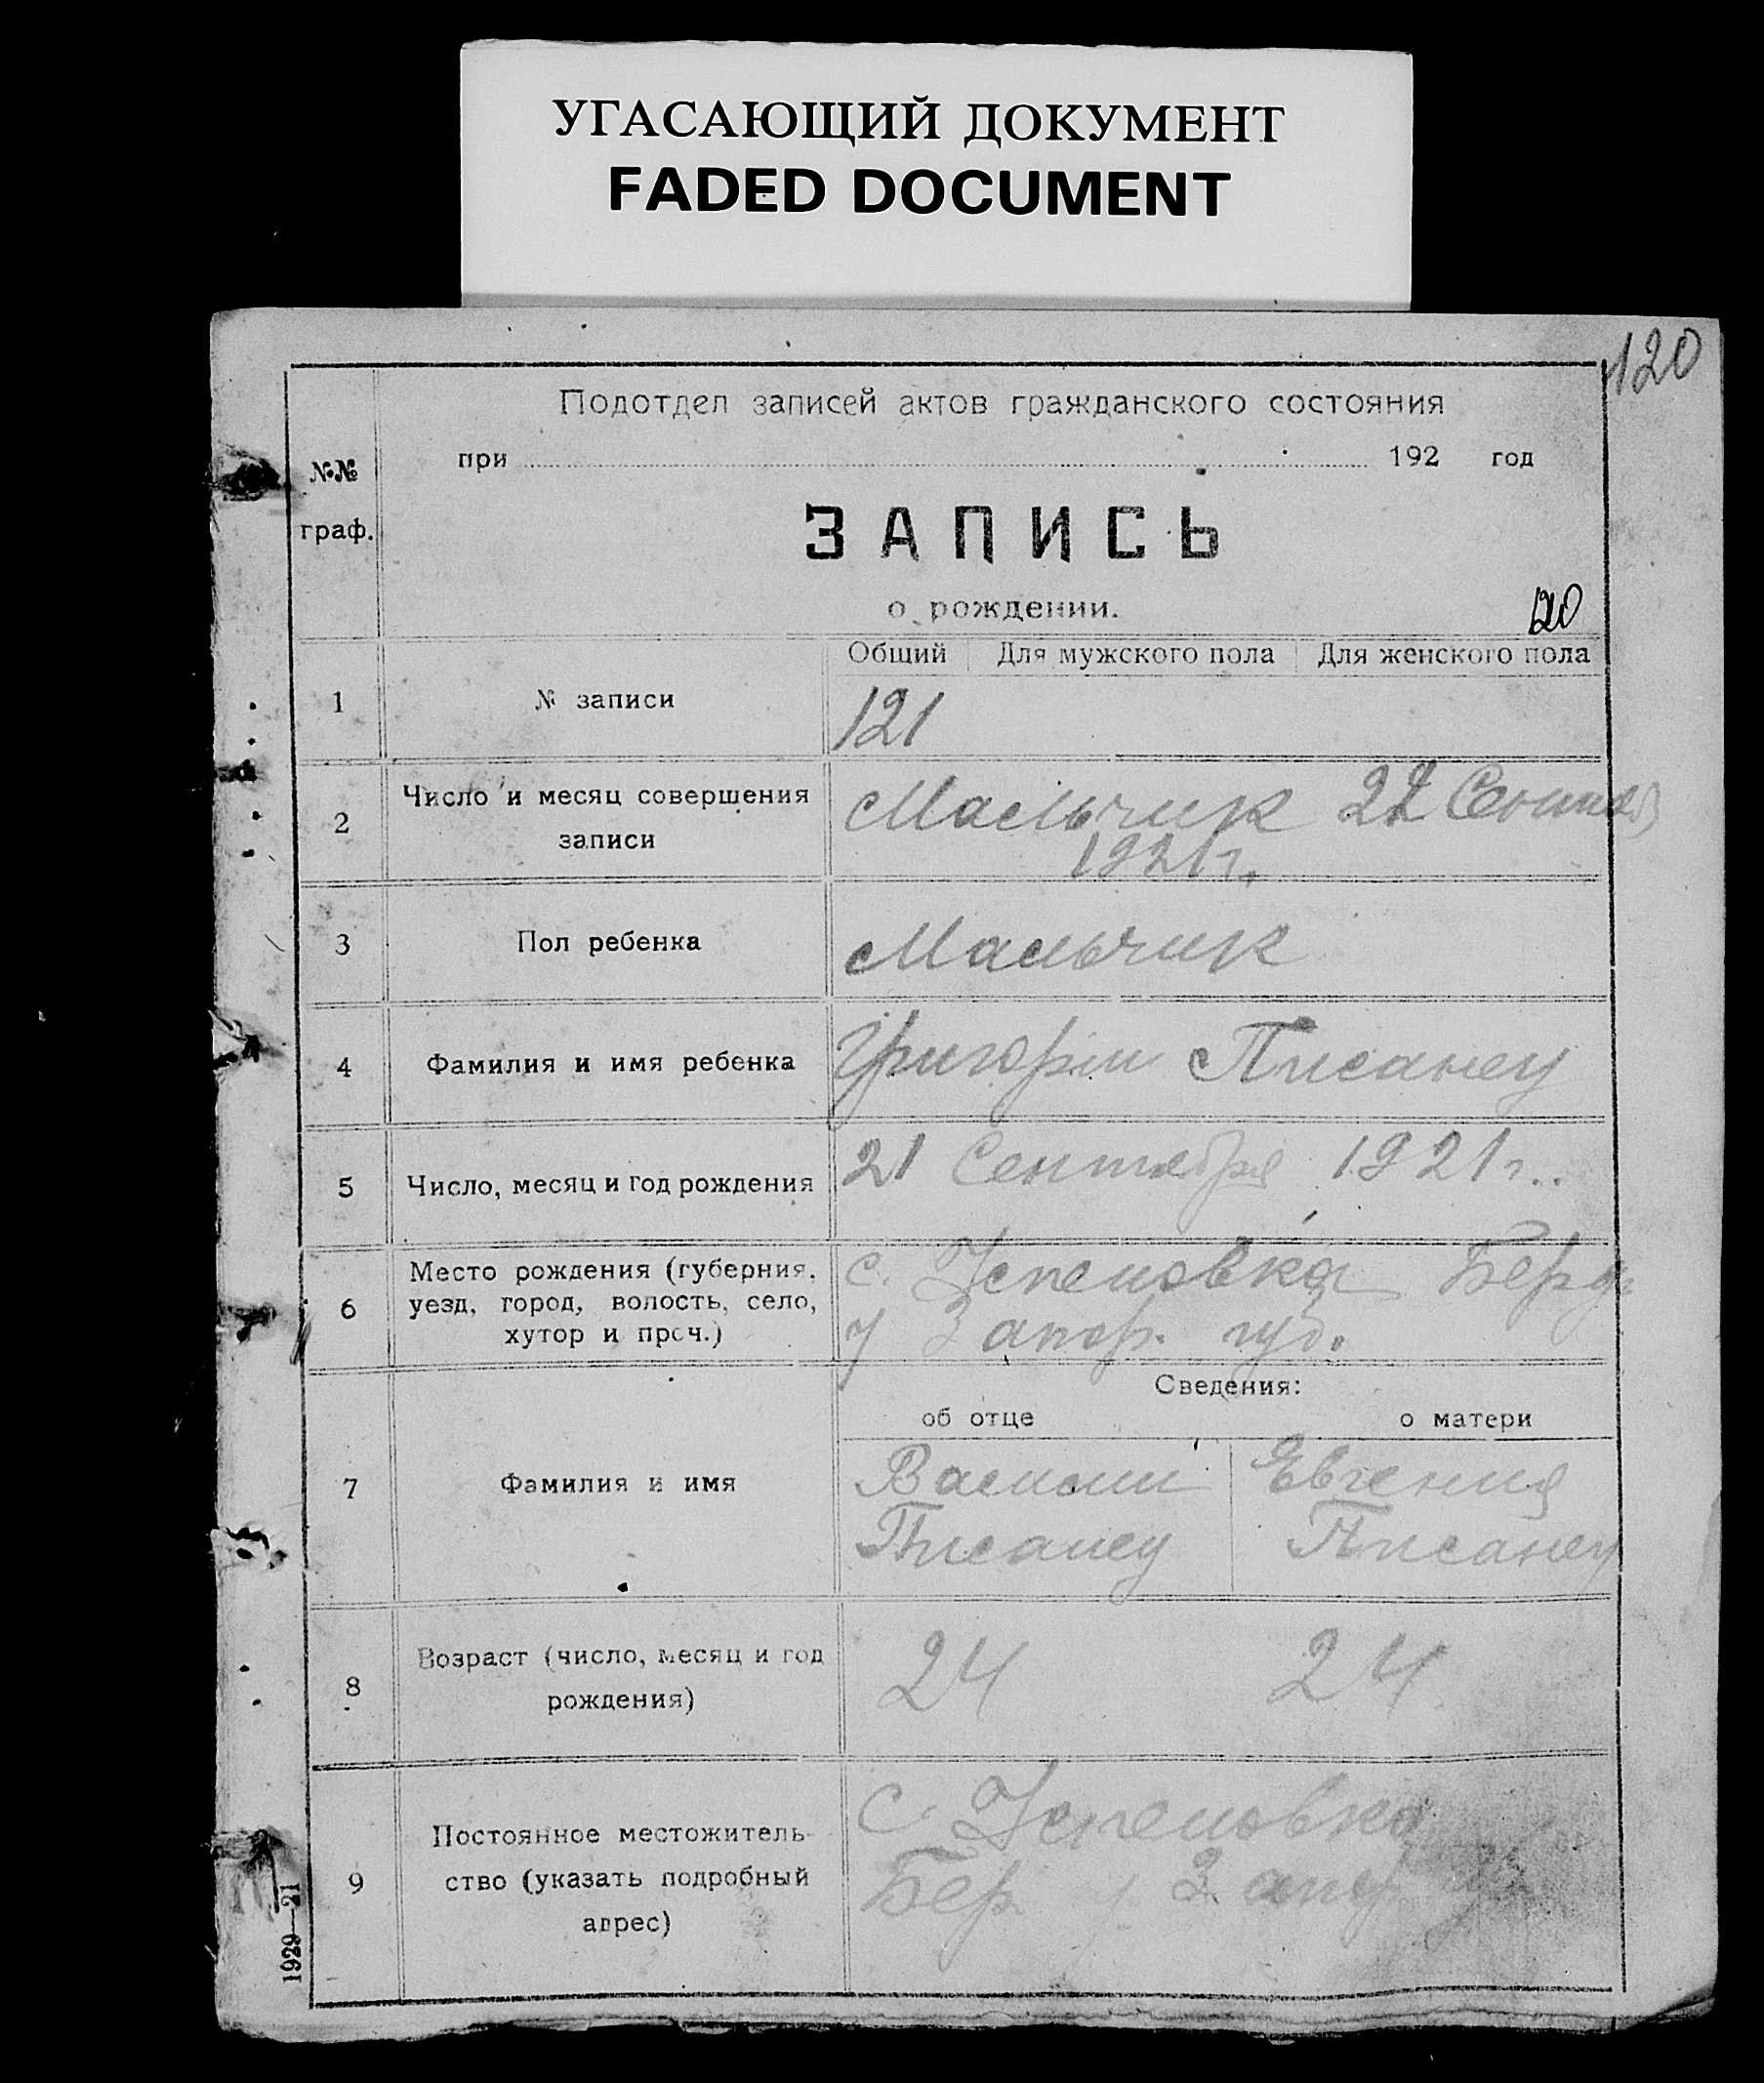 УГАСАЮЩИЙ ДОКУМЕНТ
FADED DOCUMENT
120
Подотдел записей актов гражданского состояния
№№ граф.
при 192 год
ЗАПИСЬ
о рождении.
120
Общий Для мужского пола Для женского пола
1 № записи 121
2 Число и месяц совершения записи
Мальчик 22
1921 г.
3 Пол ребенка Мальчик
4 Фамилия и имя ребенка Григорий Писанец
5 Число, месяц и год рождения 21 Сентября 1921 г.
6 Место рождения (губерния, уезд, город, волость, село, хутор и проч.)
с. Успеновка Берд
у Запор. губ.
Сведения:
об отце о матери
7 Фамилия и имя
Василий Евгения
Писанец Писанец
8 Возраст (число, месяц и год рождения)
24 24
9 Постоянное местожитель-
ство (указать подробный
адрес)
с. Успеновка
Бер
1929—21